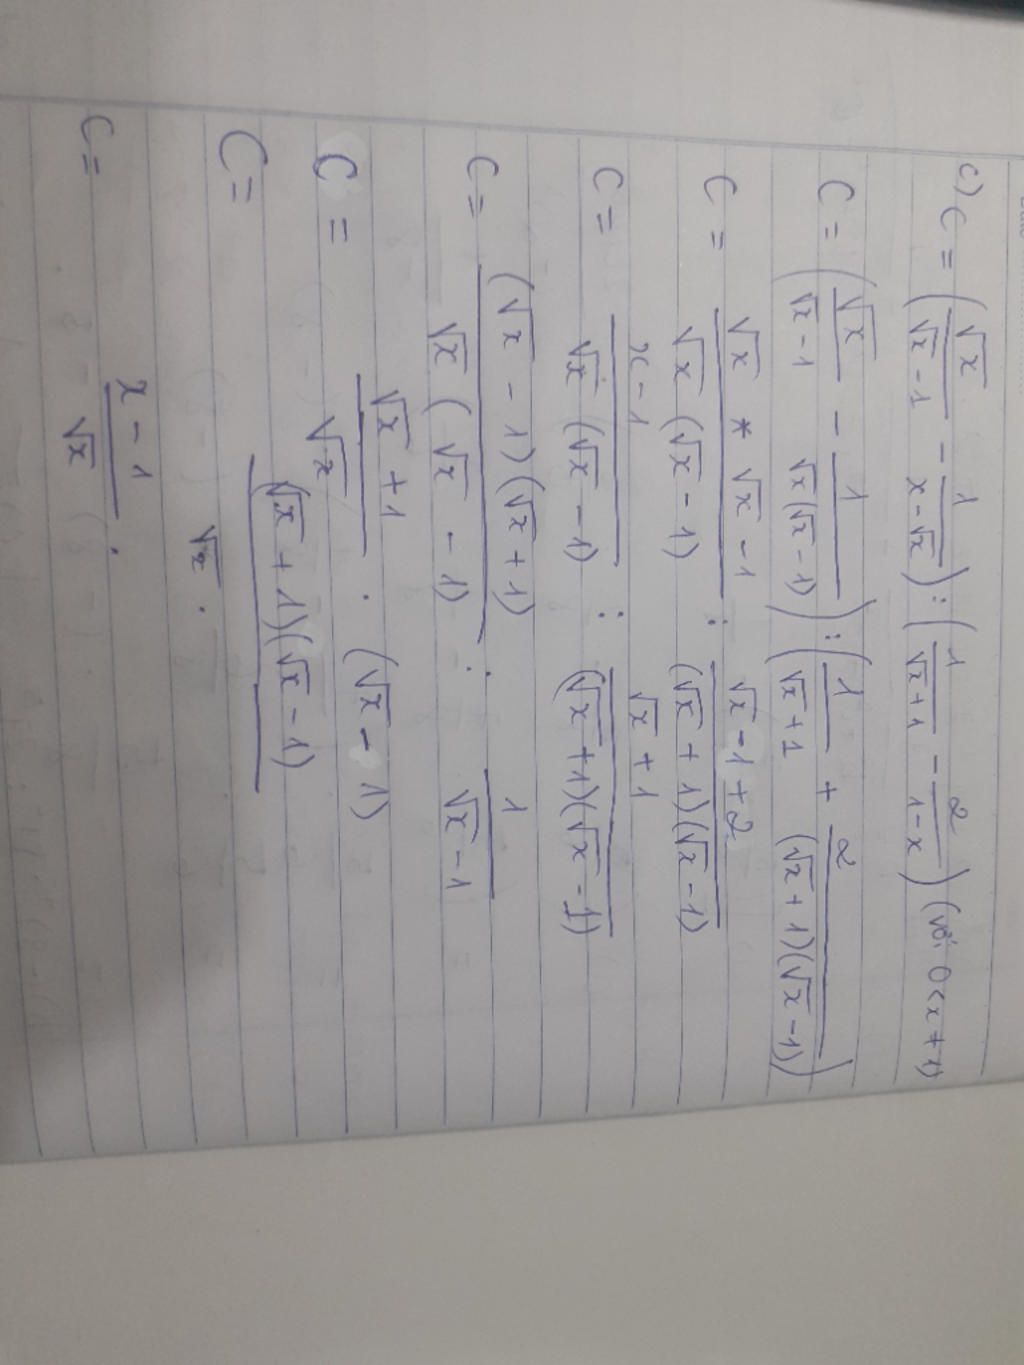 c) C = (√x/(√x - 1) - 1/(x - √x)) : (1/(√x + 1) - 2/(1 - x)) (với 0 < x ≠ 1)
C = (√x/(√x - 1) - 1/(√x(√x - 1))) : (1/(√x + 1) + 2/((√x + 1)(√x - 1)))
C = (√x * √x - 1)/(√x(√x - 1)) : (√x - 1 + 2)/((√x + 1)(√x - 1))
C = (x - 1)/(√x(√x - 1)) : (√x + 1)/((√x + 1)(√x - 1))
C = ((√x - 1)(√x + 1))/(√x(√x - 1)) : 1/(√x - 1)
C = (√x + 1)/√x . (√x - 1)
C = ((√x + 1)(√x - 1))/√x .
C = (x - 1)/√x .